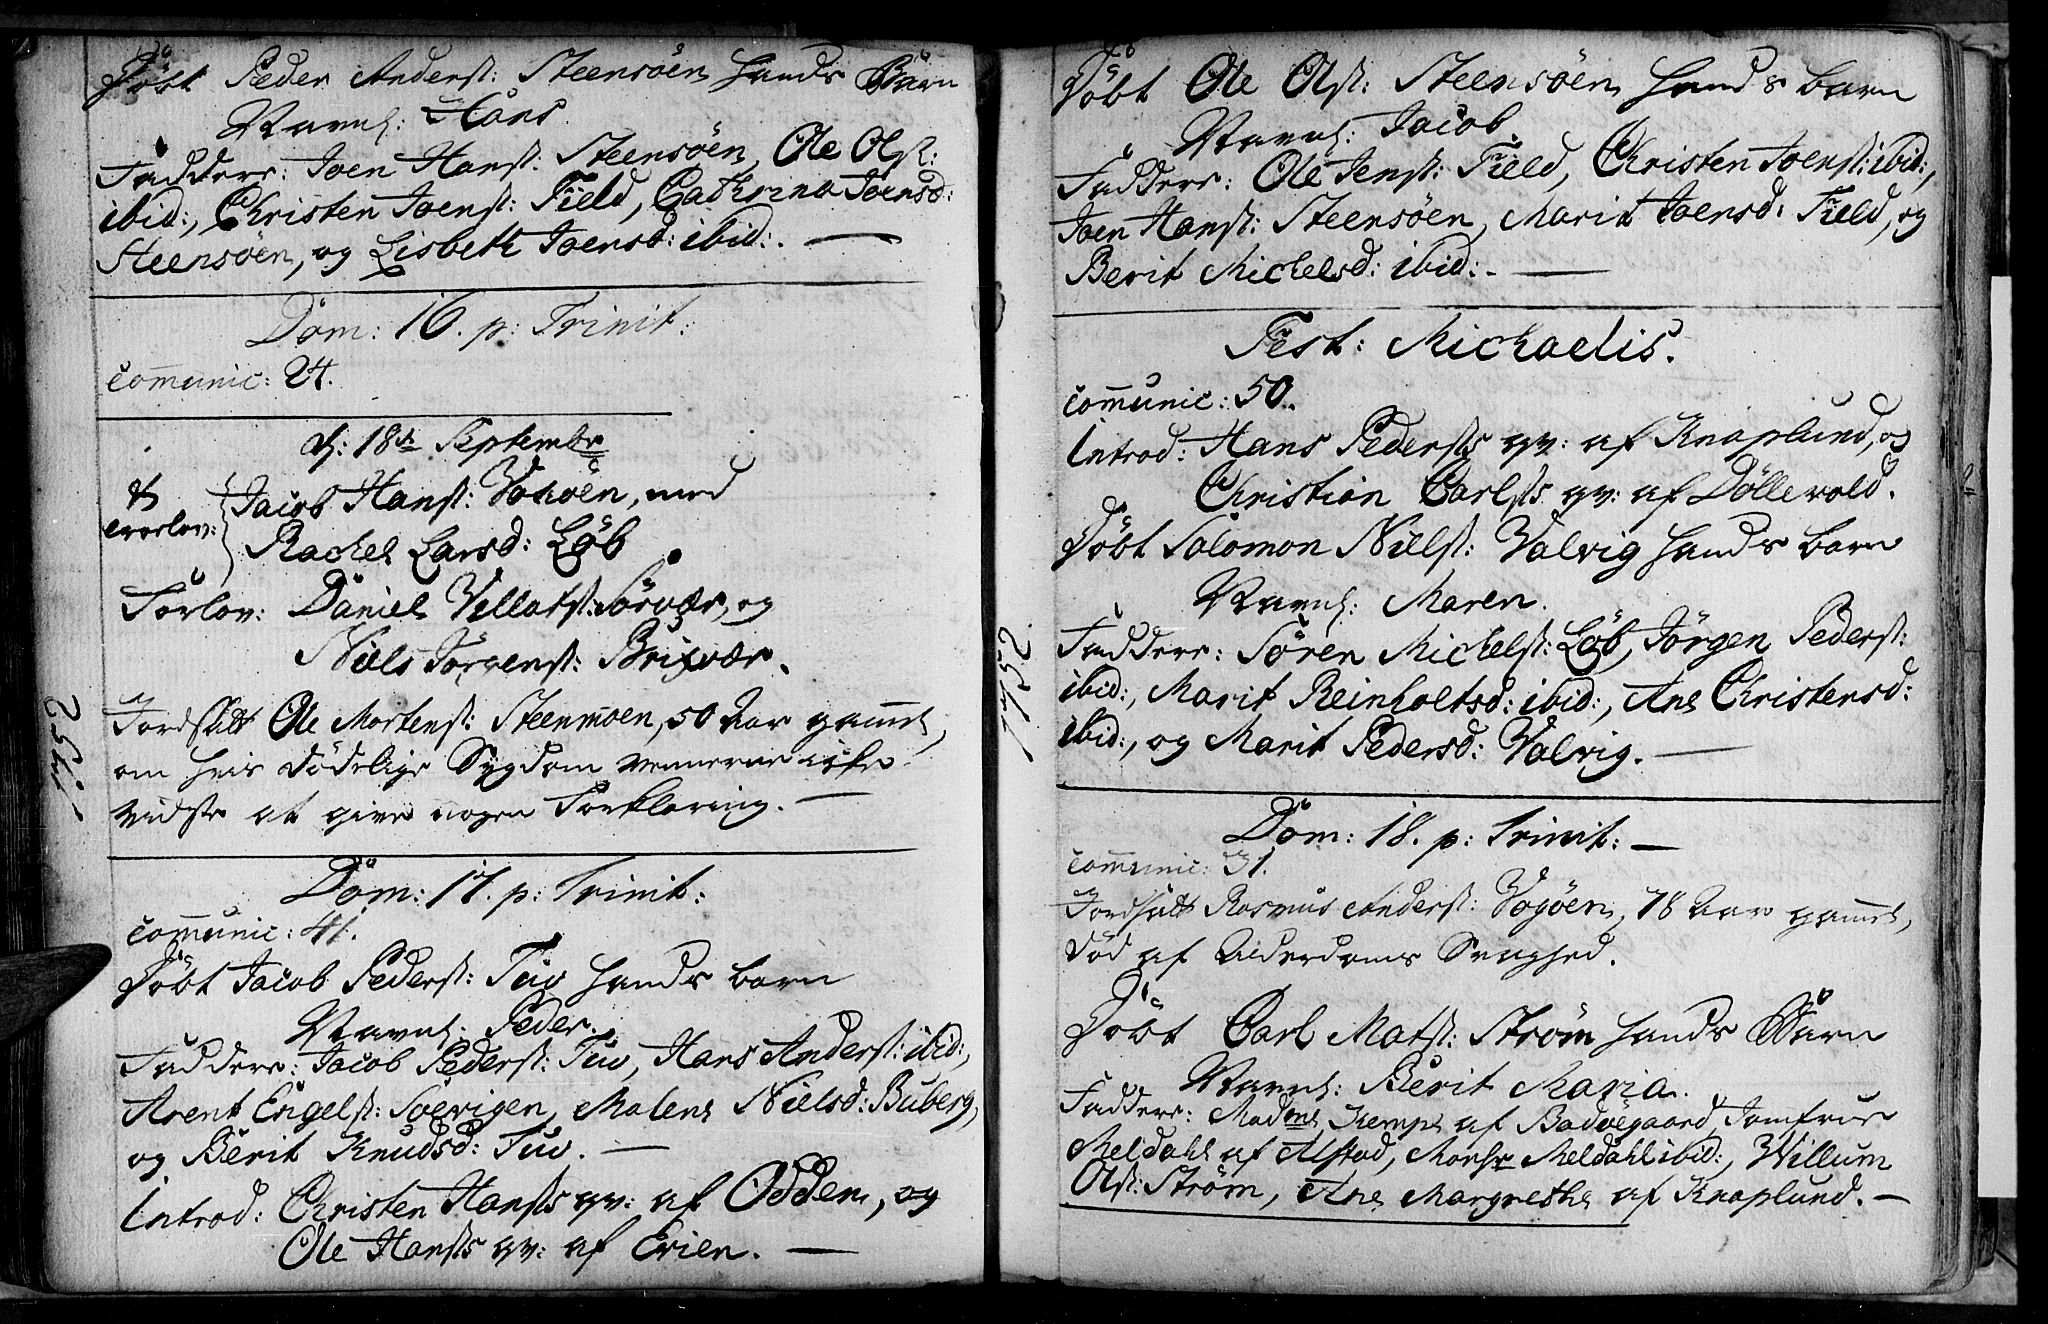 Döbt Peder Anderst: Steensöen hands Barn
Navnl: Hans
Faddere: Joen Hanst: Steensöen, Ole Olst:
ibid:, Christen Joenst: Field, Cathrina Joensd:
Steensöen, og Lisbeth Joensd: ibid:. —
Dom: 16. p: Trinit:
Com̄unic: 24.
d: 18de Septembr
Jacob Hanst: , med
Rachel Larsd: Löb
Forlov: Daniel Villatst: Sörvær, og
Niels Jörgenst: Brixvær.
Jordfält Ole Mortenst: Steenmoen, 50 Aar gam̄el,
om hvis dödelige Sygdom vennerne icke
vidste at give nogen Forklaring. —
1752.
Dom: 17. p: Trinit:
Com̄unic: 41.
Döbt Jacob Pederst: Tuv hands barn
Navnl: Peder.
Faddere: Jacob Pederst: Tuv, Hans Anderst: ibid:,
Arent Engelst: Soevigen, Malene Nielsd: Buberg,
og Berit Knudsd: Tuv. —
Introd: Christen Hansts qv: af Odden, og
Ole Hansts qv: af Evien. —
Döbt Ole Olst: Steensöen hands barn
Navnl: Jacob.
Faddere: Ole Jenst: Field, Christen Joenst: ibid:,
Joen Hanst: Steensöen, Marit Joensd: Field, og
Berit Michelsd: ibid:. —
Fest: Michaelis.
Com̄unic: 50.
Introd: Hans Pedersts qv: af Knaplund, og
Christian Carlsts qv: af Döllevold.
Döbt Salomon Nielst: Valvig hands barn
Navnl: Maren.
Faddere: Sören Michelst: Löb, Jörgen Pederst:
ibid:, Marit Reinholtsd: ibid:, Ane Christensd:
ibid:, og Marit Pedersd: Valvig. —
1752.
Dom: 18. p: Trinit: —
Com̄unic: 31.
Jordfält Rasmus Anderst: Vogöen, 78 Aar gam̄el,
död af Alderdoms Svaghed.
Döbt Carl Matst: Ström hands Barn
Navnl: Berit Maria.
Faddere: Madme Kempe af Badvegaard, Jomfrue
Meldahl af Alstad, Monsr Meldahl ibid:, Willum
Olst: Ström, Ane Margrethe af Knaplund. —